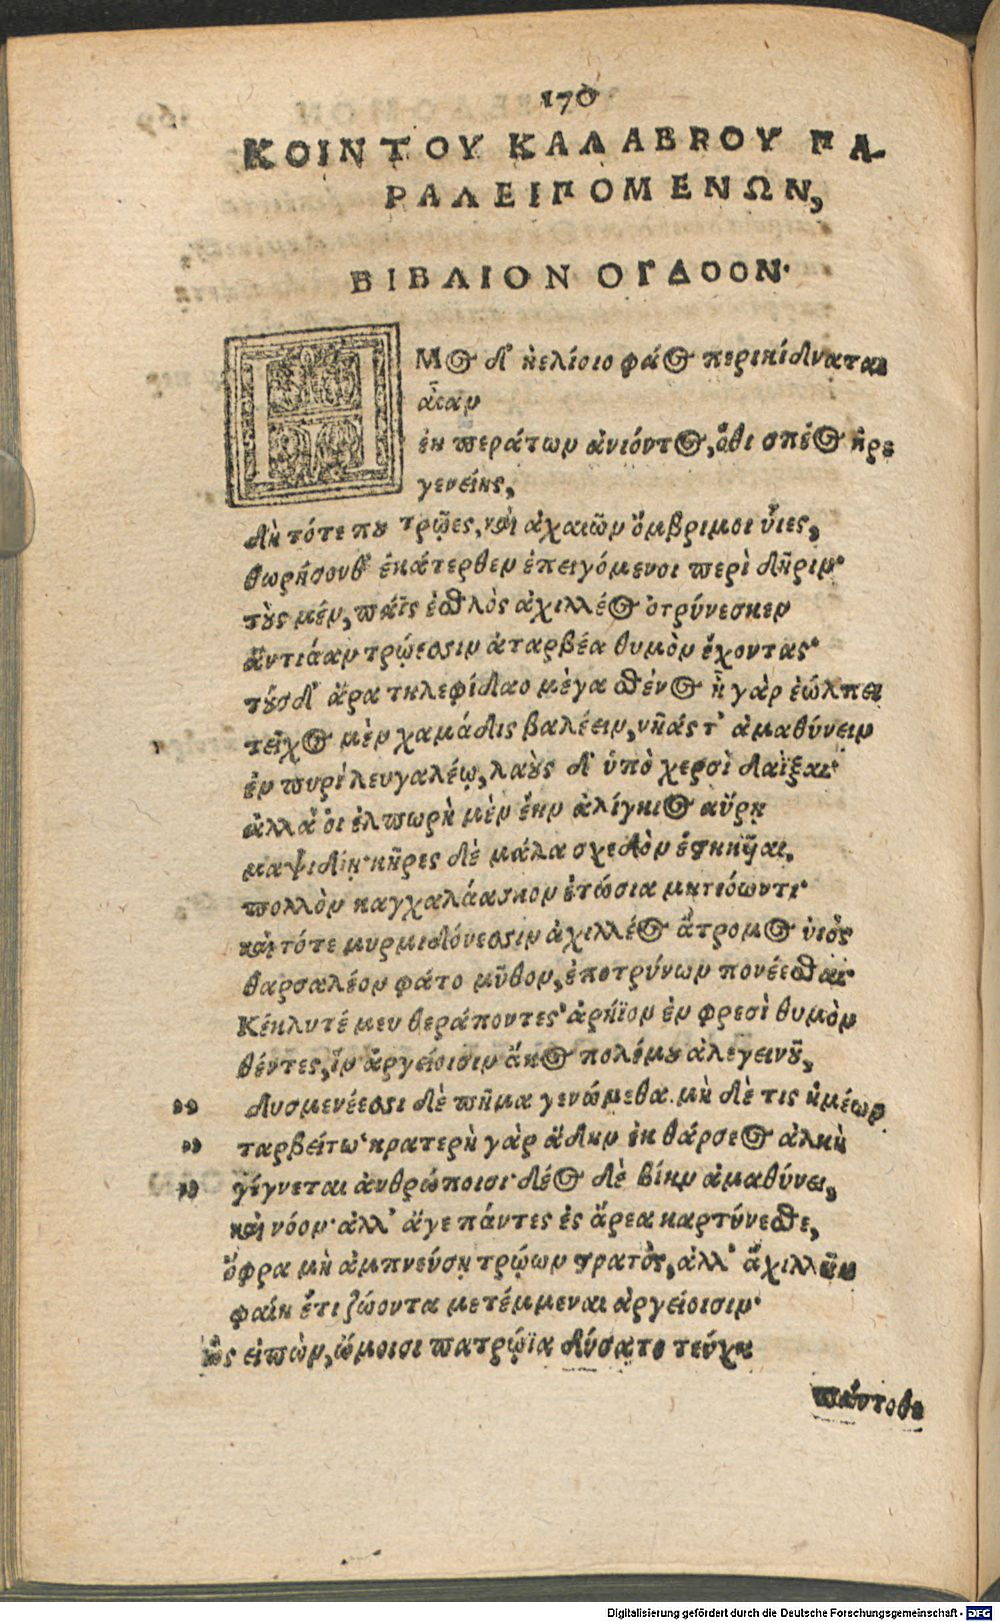 170
ΚΟΙΝΤΟΥ ΚΑΛΑΒΡΟΥ ΠΑ-
ΡΑΛΕΙΠΟΜΕΝΩΝ,
ΒΙΒΛΙΟΝ ΟΓΔΟΟΝ·
ΗΜος δ' ἠελίοιο φάος περικίδναται
αἶαν
ἐκ περάτων ἀνιόντος, ὅθι σπέος ἠρι
γενείης,
Δὴ τότε που τρῶες, καὶ ἀχαιῶν ὄμβριμοι υἷες,
θωρήσονθ' ἑκάτερθεν ἐπειγόμενοι περὶ δῆριν·
τοὺς μέν, πάϊς ἐσθλὸς ἀχιλλέος ὀτρύνεσκεν
ἀντιάαν τρώεσσιν ἀταρβέα θυμὸν ἔχοντας·
τοὺσδ' ἄρα τηλεφίδαο μέγα σθένος ἦ γὰρ ἐώλπει
τεῖχος μὲν χαμάδις βαλέειν, νῆάς τ' ἀμαθύνειν
ἐν πυρὶ λευγαλέῳ, λαοὺς δ' ὑπὸ χερσὶ δαΐξαι·
ἀλλά οἱ ἐλπωρὴ μὲν ἔην ἀλίγκιος αὔρῃ
μαψιδίῃ· κῆρες δὲ μάλα σχεδὸν ἑστηκῆαι.
πολλὸν καγχαλάασκον ἐτώσια μητιόωντι·
καὶ τότε μυρμιδόνεσσιν ἀχιλλέος ἄτρομος υἱὸς
θαρσαλέον φάτο μῦθον, ἐποτρύνων πονέεσθαι·
Κέκλυτέ μευ θεράποντες· ἀρήϊον ἐν φρεσὶ θυμὸν
θέντες, ἵν ἀργείοισιν ἄκος πολέμου ἀλεγεινοῦ,
" Δυσμενέεσσι δὲ πῆμα γενώμεθα. μὴ δέ τις ἡμέων
" ταρβείτω· κρατερὴ γὰρ ἄδην ἐκ θάρσεος ἀλκὴ
" γίγνεται ἀνθρώποισι· δέος δὲ βίην ἀμαθύνει,
καὶ νόον· ἀλλ' ἄγε πάντες ἐς ἄρεα καρτύνεσθε,
ὄφρα μὴ ἀμπνεύσῃ τρώων στρατὸς, ἀλλ' ἀχιλλῆα
φαίη ἔτι ζώοντα μετέμμεναι ἀργείοισιν·
ὣς εἰπὼν, ὤμοισι πατρώϊα δύσατο τεύχη
πάντοθε